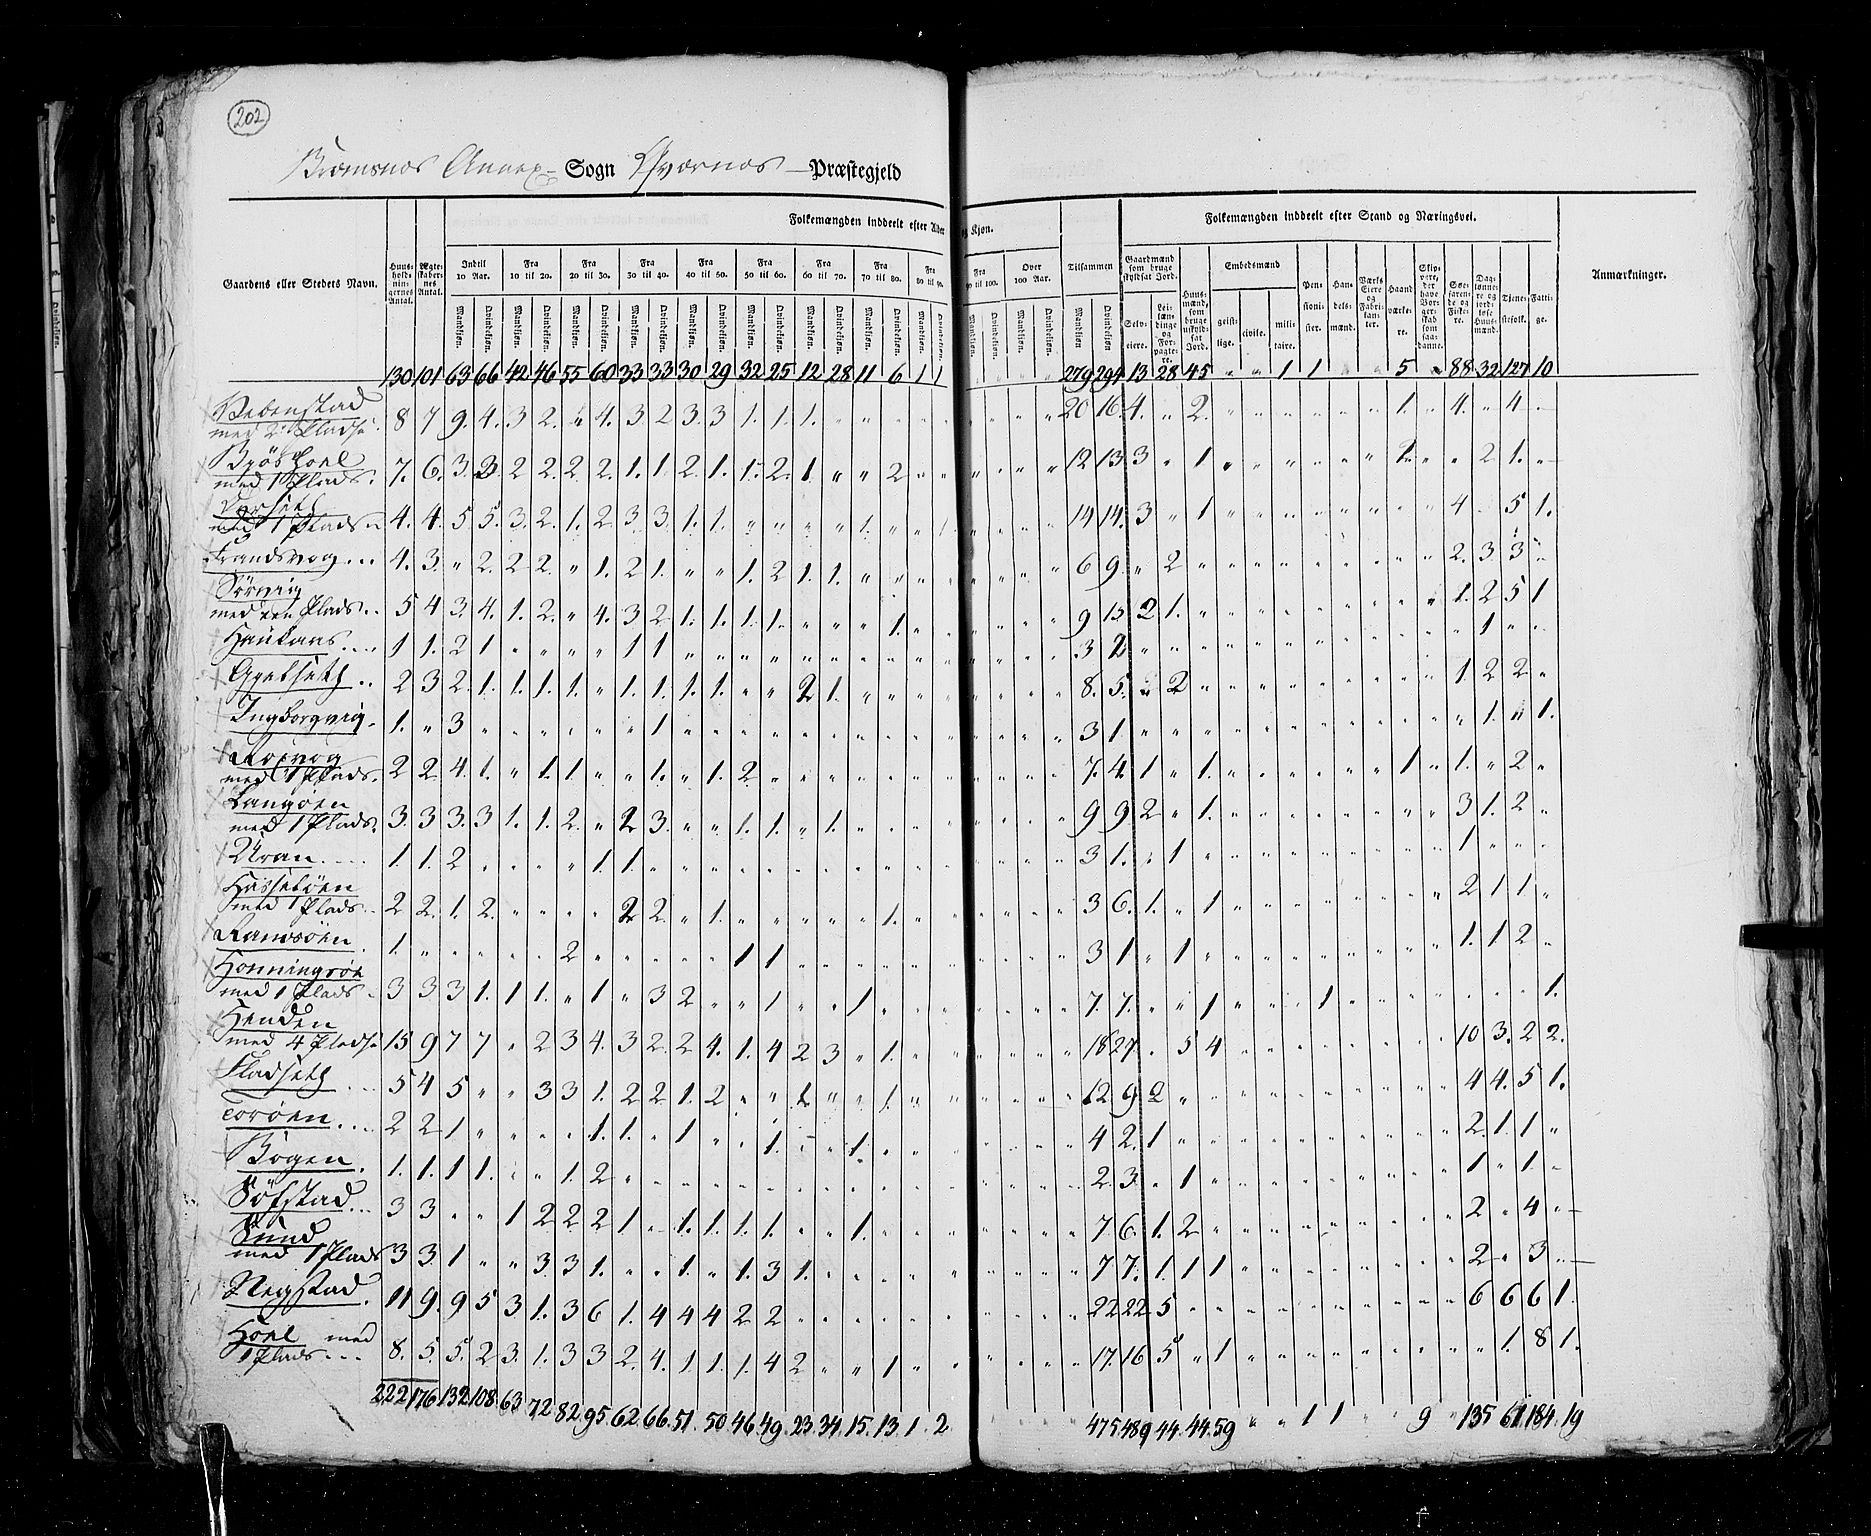 202
Bremsnæs Annex- Sogn Qværnæs — Præstegjeld
Folkemængden inddeelt efter Alder og Kjøn.
Folkemængden inddeelt efter Stand og Næringsvei.
Gaardens eller Stedets Navn.
Huusholdningernes Antal.
Ægteskabernes Antal.
Indtil 10 Aar.
Fra 10 til 20.
Fra 20 til 30.
Fra 30 til 40.
Fra 40 til 50.
Fra 50 til 60.
Fra 60 til 70.
Fra 70 til 80.
Fra 80 til 90.
Fra 90 til 100.
Over 100 Aar.
Tilsammen
Mandkiøn. Qvindekiøn.
Gaardmænd som bruge skyldsat Jord.
Selveiere.
Leilændinge og Forpagtere.
Huusmænd, som bruge uskyldsat Jord.
Embedsmænd
geistlige. civile. militaire.
Pensionister.
Handelsmænd.
Værks Eiere og Fabrikanter.
Haandværkere.
Skippere, der have Borgerskab som saadanne.
Søefarende og Fiskere.
Daglønnere og jordløse Huusmænd.
Tjenestefolk.
Fattige.
Anmærkninger.
130 101 63 66 42 46 55 60 33 33 30 29 32 25 12 28 11 6 1 1 279 294 13 28 45 " " 1 1 " " 5 " 88 32 127 10
Vebenstad
med 2de Pladse 8 7 9. 4. 3 2. " 4. 3 2 3 3 1. 1. 1. " " 20 16. 4. " 2. " 1. " 4. " 4 -
med 1 Plads. 7. 6. 3. 3 2 2. 2. 2. 1. 1 2. 1. 1. 2. 1 " " 2 " 12 13. 3 " 1 " 1 " " 2 1. -
med 1 Plads 4. 4. 5 5. 3. 2. 1. 2. 3 3. 1. 1. " " " " 1. " 14 14. 3 " 1 " 4 5 1.
Frandsvog 4. 3. " 2. 2 2. " 1. 2 1. " " 1. 2 1. 1. " 6 9. " 2 " 2. 3. 3 "
Sørvig
med een Plads 5 4 3. 4. 1. 2. " 4. 3 2 1. 1. 1. 1. " " " 1. " 9 15 2 1. " 1. 2 5 1
Haukaas 1 1. 2 1 " " " " 1 1 " 3 2 " 1 " "
Gretseth 2 3 2. 1. 1. 1. 1. " 1. 1. 1. 1. " " 2 1. " 8. 5. " 2 " 1 2 2 "
Ingborgvig 1. " 3 " 1 " 3 1 " 1. " 1.
med 1 Plads 2 2 4. 1. " 1. 1 " " 1. " 1. 2 " 7. 4. 1 " 1. " 1 " 1. " 2 "
Langøen
med 1 Plads. 3. 3 3. 3 1. 1. 2. " 2 3. " " 1. 1. " 1. " 9 9 2 " 1. " 3 1. 2 "
Uran 1. 1. 2 " " " " 1. 1. " 3 1. " 1 " 1 " "
Hassetøen
med 1 Plads 2 2. 1. 2. " " " " 2 2. " 1. " 1. " 3 6. 1. " 1 " 2 1 1 "
Ramsøen 1. " 2 " 1 1 " 3 1 " 1 " 1. 1 2 "
Honningsøe
med 1 Plads 3 3. 3 1. 1 1. " 1 " 3 2 " " 1 " " 1 " 7. 7. " " 1 " 1 " 1.
Henden
med 4 Pladse 15 9 7 7 " 2 3 4. 3 2. 2 4. 1. 4 2 3 " 1. " 18 27 " 5 4 " 10 3. 2 2.
Fladseth 5 4 5 " " 3 3 1. 2 2 1. 2 " " 1 " " 1. " 12 9 2 " 4 4. 5 1.
Torøen 2 2 1 " " " " 1. 1. " 1 " " 1. - " 1. " 4 2. 1 " 2. 1. 1 "
Bøgen 1. 1. 1 1. " " 1. 2 " 2 3 " 1 " 1 " 1. "
Søfstad 3 3 " " 1 2 2 2 1 " 1. 1. 1. 1. " " 1. " 7 6 1. 2 " 2 " 4 " -
Sund
med 1 Plads 3 3. 1 " " 3. 3 1. " " 1. " 1. 3 1. " 7 7. 1. 1 1 " 2 " 3 " -
Negstad 11 9. 9 5 3 1. 3 6 1. 4 4 4 2 2 " 22 22 5 " 6 6 6 1.
Hoel med
1 Plads 8. 5. 5. 2 3. 1. 3 3 2. 4. 1 1. 1. 4 2 " " 1 " 17. 16 5 " 1 " 1. 8 1.
222 176 132 108. 63. 72 82. 95. 62. 66. 51. 50 46. 49. 23. 34. 15. 13. 1. 2. 475 489. 44. 44. 59 " " 1 1 " 9 " 135 61 184. 19